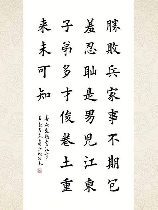 勝敗兵家事不期包
羞忍恥是男児江東
子弟多才俊巻土重
来未可知